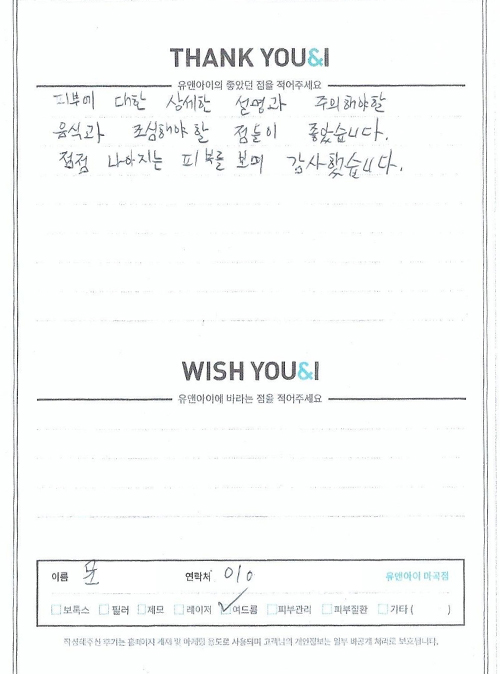 THANK YOU&I
유앤아이의 좋았던 점을 적어주세요
피부에 대한 상세한 설명과 주의해야할
음식과 조심해야 할 점들이 좋았습니다.
점점 나아지는 피부를 보며 감사했습니다.
WISH YOU&I
유앤아이에 바라는 점을 적어주세요
이름 문 연락처 010 유앤아이 마곡점
보톡스 필러 제모 레이저 여드름 피부관리 피부질환 기타 ( )
작성해주신 후기는 홈페이지 게재 및 마케팅 용도로 사용되며 고객님의 개인정보는 일부 비공개 처리로 보호됩니다.